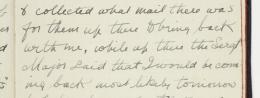 & collected what mail there was
for them up there & bring back
with me, while up there the Sergt
Major said that I would be com
ing back most likely tomorrow